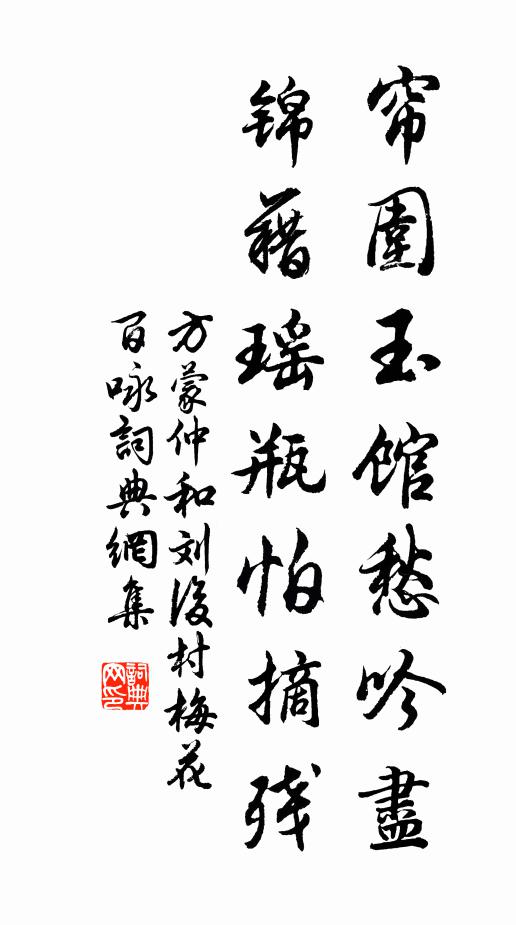 帘圍玉館愁吟盡
錦藉瑶瓶怕摘残
方蒙仲和刘後村梅花
百咏詞典網集
詞典网印